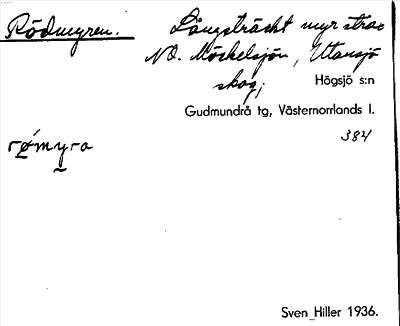 Rödmyren. Långsträckt myr strax
NO. Möckelsjön, Utansjö
skog;
Högsjö s:n
Gudmundrå tg, Västernorrlands l.
384
rø´myra
Sven Hiller 1936.